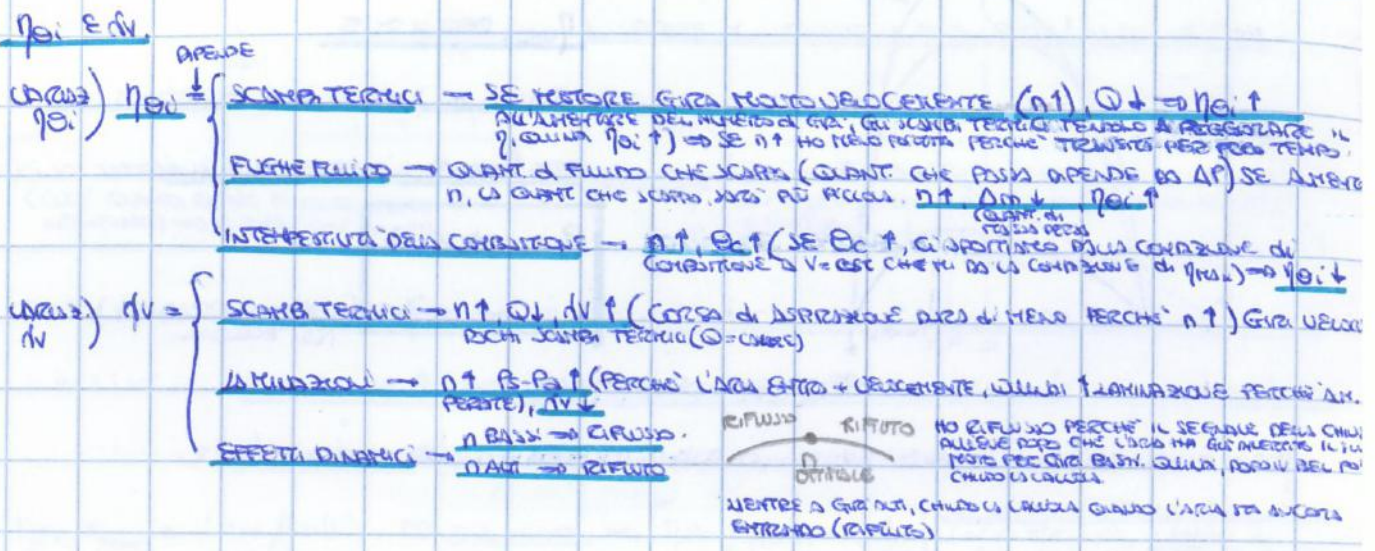 ηθi E λv.
DIPENDE
VARIAZ) ηθi) ηθi = { SCAMBI TERMICI → SE MOTORE GIRA MOLTO VELOCEMENTE (n↑), Q↓ ⇒ ηθi ↑
ALL'AUMENTARE DEL NUMERO di GIRI, GLI SCAMBI TERMICI TENDONO A PEGGIORARE IL
η, QUINDI ηθi ↑) ⇒ SE n↑ HO MENO PERCHE' TRANSITA PER POCO TEMPO.
FUGHE FLUIDO → QUANT. di FLUIDO CHE SCAPPA (QUANT. CHE PASSA DIPENDE DA ΔP) SE AUMENTO
n, LA QUANT CHE SCAPPA SARÀ PIÙ PICCOLA. n↑, Δm↓, ηθi ↑
(QUANT. di
MASSA PERSA)
INTEMPESTIVITÀ DELLA COMBUSTIONE → n↑, θc↑ (SE θc ↑, CI SPOSTIAMO DALLA CONDIZIONE di
COMBUSTIONE A V=COST CHE MI DA LA CONDIZIONE di ηMAX) ⇒ ηθi ↓
VARIAZ) λv) λv = { SCAMBI TERMICI → n↑, Q↓, λv ↑ (CORSA di ASPIRAZIONE DURA di MENO PERCHE' n↑) GIRA VELOCE
POCHI SCAMBI TERMICI (Q=CALORE)
LAMINAZIONI → n↑ Ps-Pa↑ (PERCHE' L'ARIA ENTRA + VELOCEMENTE, QUINDI ↑ LAMINAZIONE PERCHE' AUM.
PERDITE), λv ↓
EFFETTI DINAMICI → n BASSI ⇒ RIFLUSSO.
n ALTI ⇒ RIFIUTO
RIFLUSSO RIFIUTO
n
OTTIMALE
HO RIFLUSSO PERCHE' IL SEGNALE DELLA CHIU
DOPO CHE L'ARIA HA GIÀ INVERTITO IL SU
MOTO PER GIRI BASSI. QUINDI, DOPO UN BEL PO'
CHIUDO LA VALVOLA.
MENTRE A GIRI ALTI, CHIUDO LA VALVOLA QUANDO L'ARIA STA ANCORA
ENTRANDO (RIFIUTO)